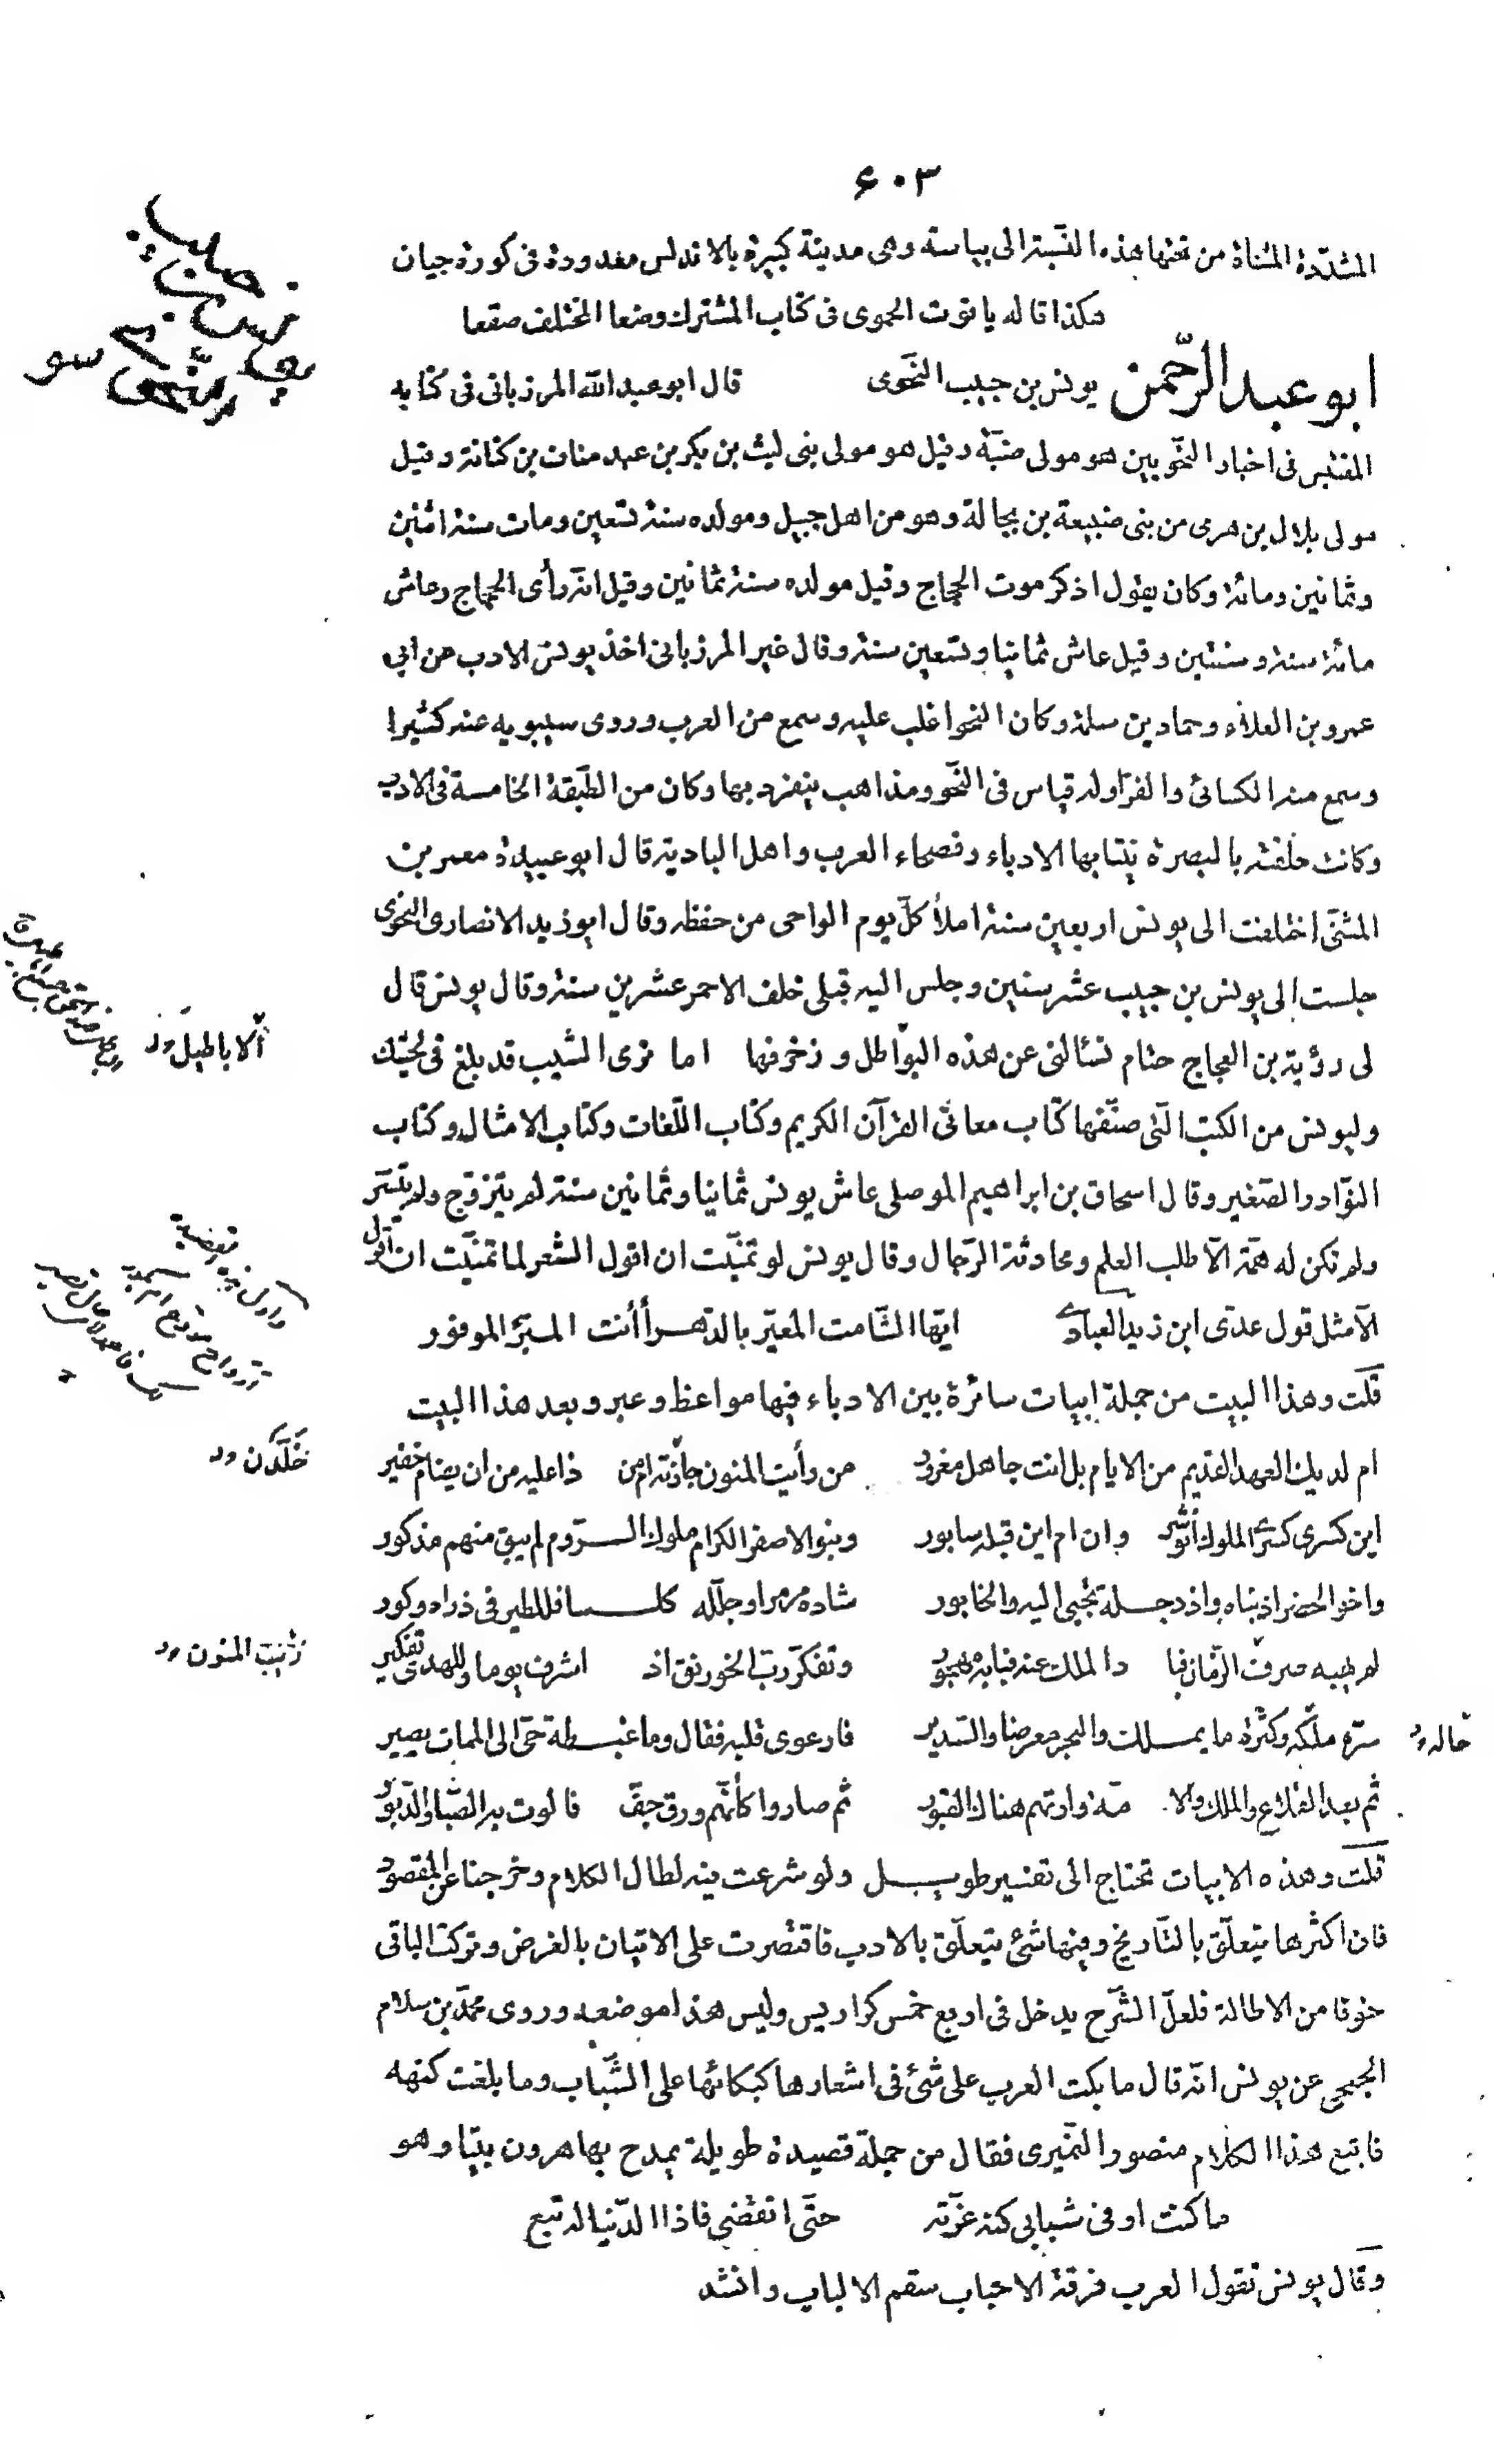 ۶۰۳
المشدّدة المثناة من تحتها هذه النّسبة الى بياسة وهى مدينة كبيرة بالاندلس معدودة فى كورة جيان
هكذا قاله ياقوت الحموى فى كتاب المشترك وضعا المختلف صقعا
ابو عبد الرّحمن يونس بن حبيب النّحوى قال ابو عبد الله المرزبانى فى كتابه
المقتبس فى اخبار النّحويين هو مولى ضبّة وقيل هو مولى بنى ليث بن بكر بن عبد مناف بن كنانة وقيل
مولى بلال بن هرمى من بنى ضبيعة بن بجالة وهو من اهل جبل ومولده سنة تسعين ومات سنة اثنين
وثمانين ومائة وكان يقول اذكر موت الحجاج وقيل مولده سنة ثمانين وقيل انّه رأى الحجاج وعاش
مائة سنة وسنتين وقيل عاش ثمانيا وتسعين سنة وقال غير المرزبانى اخذ يونس الادب عن ابى
عمرو بن العلاء وحماد بن سلمة وكان النحو اغلب عليه وسمع من العرب وروى سيبويه عنه كثيرا
وسمع منه الكسائى والفرّا وله قياس فى النّحو ومذاهب يتفرد بها وكان من الطّبقة الخامسة فى الادب
وكانت حلقته بالبصرة ينتابها الادباء وفصحاء العرب واهل البادية قال ابو عبيدة معمر بن
المثنّى اختلفت الى يونس اربعين سنة املأ كلّ يوم الواحى من حفظه وقال ابو زيد الانصارى النحوى
جلست الى يونس بن حبيب عشر سنين وجلس اليه قبلى خلف الاحمر عشرين سنة وقال يونس قال
لى رؤبة بن العجاج حتام تسئالنى عن هذه البواطل وزخرفها اما ترى الشيب قد بلغ فى لحيتك
الاباطيل
وليونس من الكتب الّتى صنّفها كتاب معانى القرآن الكريم وكتاب اللّغات وكتاب الامثال وكتاب
النّوادر الصّغير وقال اسحاق بن ابراهيم الموصلى عاش يونس ثمانيا وثمانين سنة لم يتزوّج ولم يتسرّ
ولم تكن له همّة الّا طلب العلم ومحادثة الرّجال وقال يونس لو تمنّيت ان اقول الشعر لما تمنّيت ان اقول
الّا مثل قول عدّى ابن زيد العبادى ايّها الشّامت المعيّر بالدّهـر أأنت المبرّء الموفور
قلت وهذا البيت من جملة ابيات سائرة بين الادباء فيها مواعظ وعبر وبعد هذا البيت
ام لديك العهد القديم من الايام بل انت جاهل مغرور من رأيت المنون جاوزته ام من ذا عليه من ان يضام خفير
خلّدن
اين كسرى كسرى الملوك انوشر وان ام اين قبله سابور وبنو الاصفر الكرام ملوك الـرّوم لم يبق منهم مذكور
واخو الحضر اذ بناه واذ دجـلة تجبى اليه والخابور شاده مرمرا وجلّله كلـسا فللطير فى ذراه وكور
لم يهبه صرف الزّمان فبا د الملك عنه فبابه مهجور وتفكّر ربّ الخورنق اذ اشرف يوما وللهدى تفكير
ريب المنون
سرّه ملكه وكثرة ما يمـلك والبحر معرضا والسّدير فارعوى قلبه فقال وما غبـطة حىّ الى الممات يصير
حاله
ثم بعد الفلاح والملك والا مّة وارتهم هناك القبور ثم صاروا كأنّهم ورق جفّ فالوت به الصّبا والدّبور
قلت وهذه الابيات تحتاج الى تفسير طويـل ولو شرعت فيه لطال الكلام وخرجنا عن المقصود
فان اكثرها يتعلّق بالتّاريخ وفيها شئ يتعلّق بالادب فاقتصرت على الاتيان بالغرض وتركت الباقى
خوفا من الاطالة فلعلّ الشّرح يدخل فى اربع خمس كراريس وليس هذا موضعه وروى محمّد بن سلام
الجمحى عن يونس انّه قال ما بكت العرب على شئ فى اشعارها كبكائها على الشّباب وما بلغت كنهه
فاتبع هذا الكلام منصور النّميرى فقال من جملة قصيدة طويلة يمدح بها هرون بيتا وهو
ما كنت اوفى شبابى كنه غرّته حتّى انقضى فاذا الدّنيا له تبع
وقال يونس تقول العرب فرقة الاحباب سقم الالباب وانشد